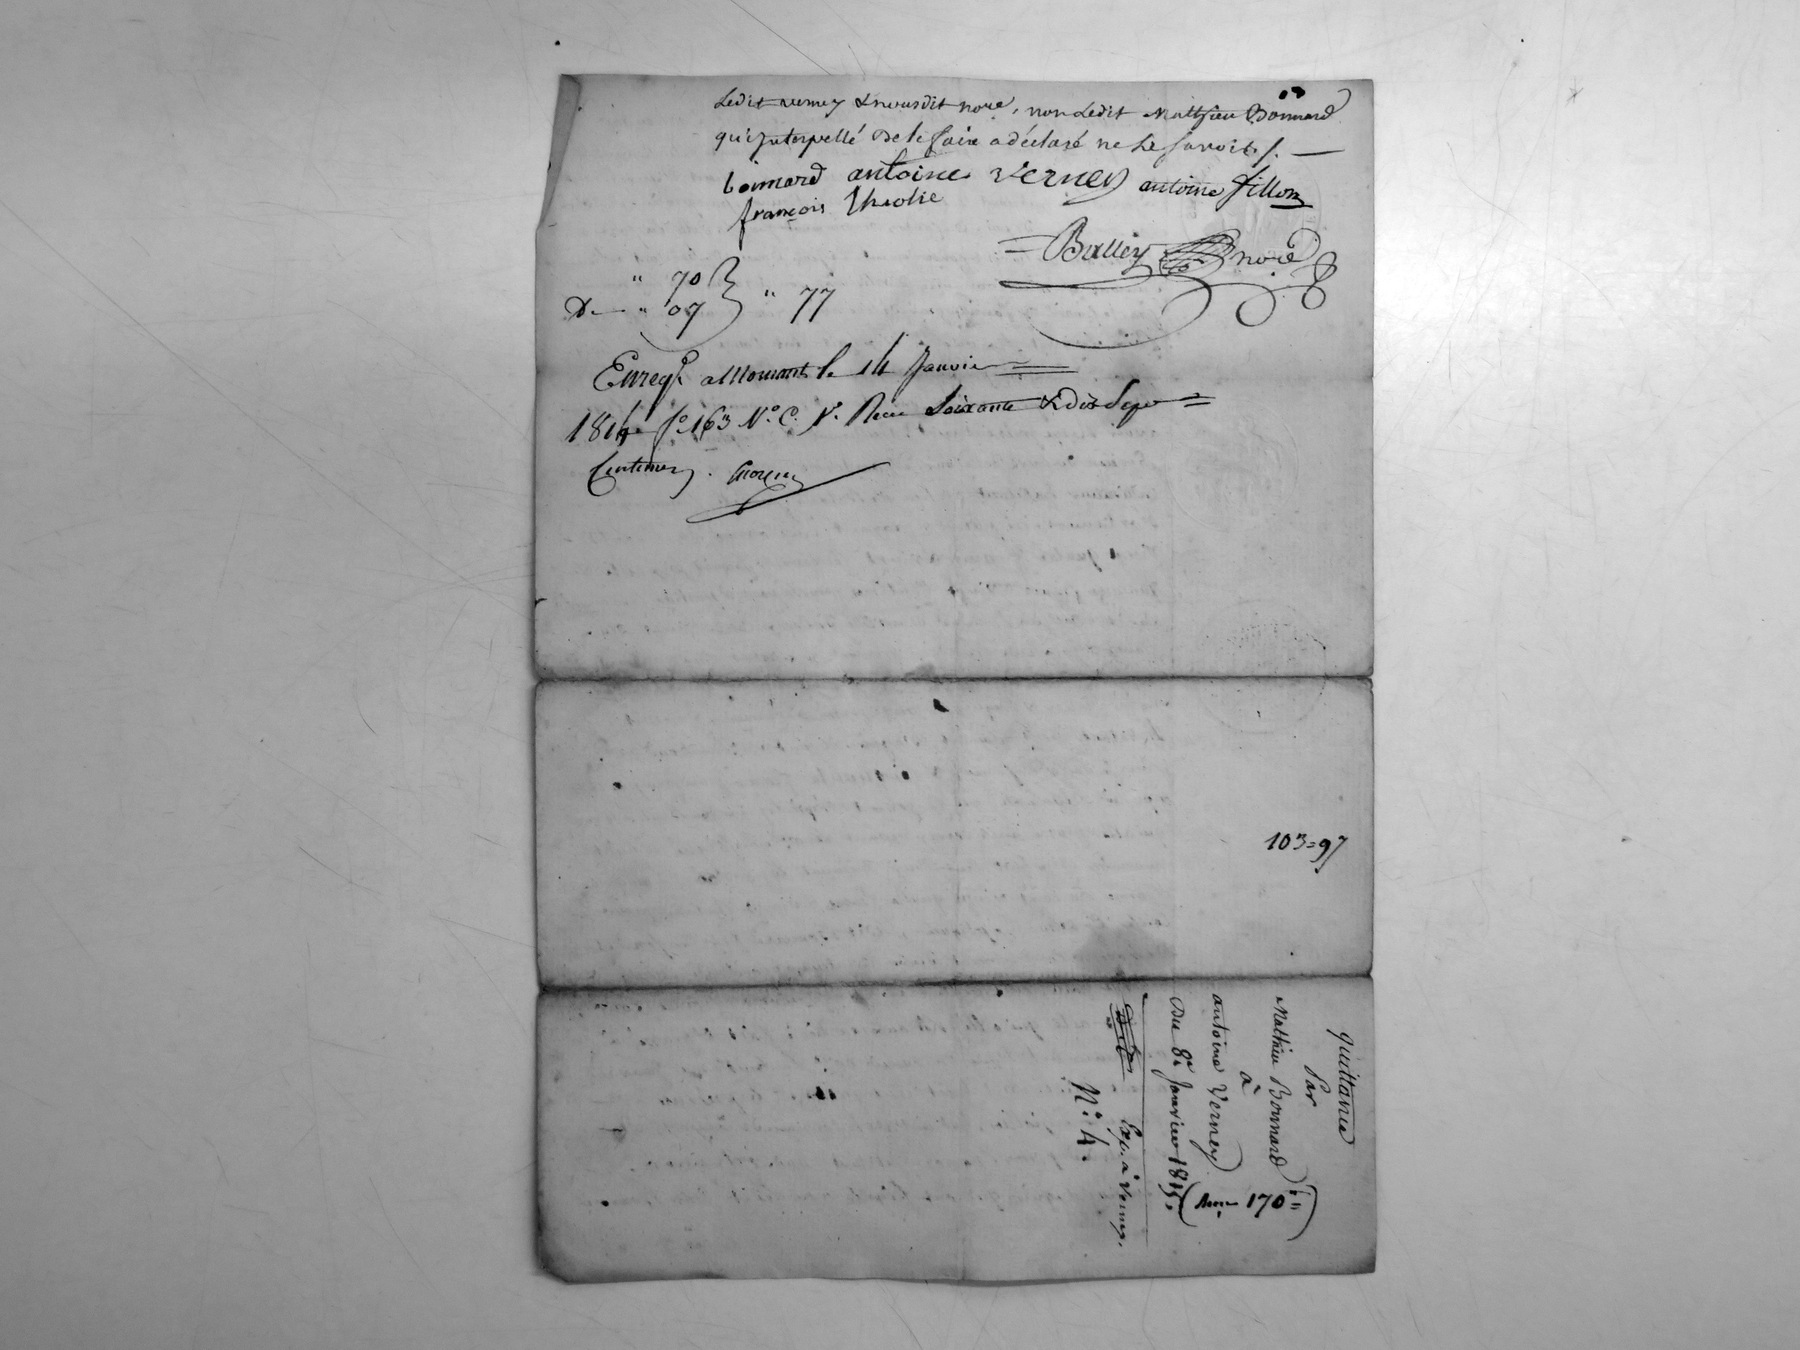 Ledit verney & nousdit nore, non Ledit Matthieu Bonnard
qui interpellé De le faire a déclaré ne Le savoir /. —
bonnard antoine verney antoine fillon
françois
Balley nore
" 70
D. " 07 } " 77
Enregé a le 14 Janvier
1814 fo 163 No. C. Ve. Recu Soixante & dix Sept
Centimes.
103=97
quittance
Par
Mathieu Bonnard
à
antoine Verney
Du 8e. Janvier 1815.
( 170 )
Exp. à Verney.
No. 4.